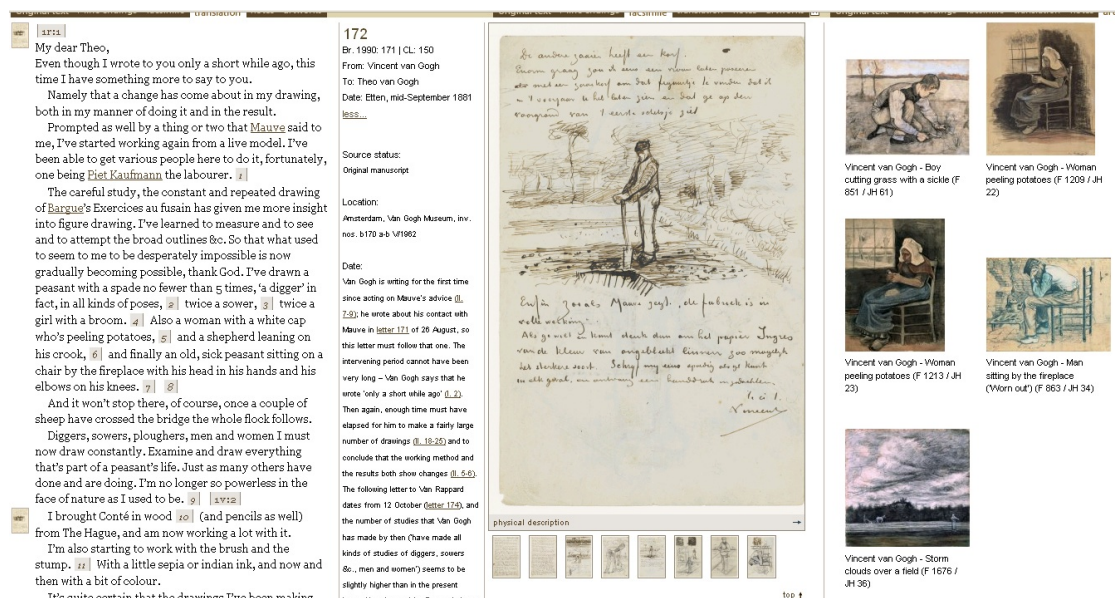 translation
facsimile
1r:1
My dear Theo,
Even though I wrote to you only a short while ago, this
time I have something more to say to you.
Namely that a change has come about in my drawing,
both in my manner of doing it and in the result.
Prompted as well by a thing or two that Mauve said to
me, I've started working again from a live model. I've
been able to get various people here to do it, fortunately,
one being Piet Kaufmann the labourer. 1
The careful study, the constant and repeated drawing
of Bargue's Exercices au fusain has given me more insight
into figure drawing. I've learned to measure and to see
and to attempt the broad outlines &c. So that what used
to seem to me to be desperately impossible is now
gradually becoming possible, thank God. I've drawn a
peasant with a spade no fewer than 5 times, 'a digger' in
fact, in all kinds of poses, 2 twice a sower, 3 twice a
girl with a broom. 4 Also a woman with a white cap
who's peeling potatoes, 5 and a shepherd leaning on
his crook, 6 and finally an old, sick peasant sitting on a
chair by the fireplace with his head in his hands and his
elbows on his knees. 7 8
And it won't stop there, of course, once a couple of
sheep have crossed the bridge the whole flock follows.
Diggers, sowers, ploughers, men and women I must
now draw constantly. Examine and draw everything
that's part of a peasant's life. Just as many others have
done and are doing. I'm no longer so powerless in the
face of nature as I used to be. 9 1v:2
I brought Conté in wood 10 (and pencils as well)
from The Hague, and am now working a lot with it.
I'm also starting to work with the brush and the
stump. 11 With a little sepia or indian ink, and now and
then with a bit of colour.
It's quite certain that the drawings I've been making
172
Br. 1990: 171 | CL: 150
From: Vincent van Gogh
To: Theo van Gogh
Date: Etten, mid-September 1881
less...
Source status:
Original manuscript
Location:
Amsterdam, Van Gogh Museum, inv.
nos. b170 a-b V/1962
Date:
Van Gogh is writing for the first time
since acting on Mauve's advice (ll.
7-9); he wrote about his contact with
Mauve in letter 171 of 26 August, so
this letter must follow that one. The
intervening period cannot have been
very long – Van Gogh says that he
wrote 'only a short while ago' (l. 2).
Then again, enough time must have
elapsed for him to make a fairly large
number of drawings (ll. 18-25) and to
conclude that the working method and
the results both show changes (ll. 5-6).
The following letter to Van Rappard
dates from 12 October (letter 174), and
the number of studies that Van Gogh
has made by then ('have made all
kinds of studies of diggers, sowers
&c., men and women') seems to be
slightly higher than in the present
De andere zaaier heeft een korf.
Enorm graag zou ik eens een vrouw laten poseeren
met een zaaikorf om dat figuurtje te vinden dat ik
u 't voorjaar heb laten zien en dat ge op den
voorgrond van 't eerste schetsje ziet
Enfin zooals Mauve zegt, de fabriek is in
volle werking.
Als ge wilt en kunt denk dan om het papier Ingres
van de kleur van ongebleekt linnen zoo mogelijk
het sterkere soort. Schrijf my eens spoedig als ge kunt
in elk geval, en ontvang een handdruk in gedachten.
t. à t.
Vincent
physical description →
top
Vincent van Gogh - Boy
cutting grass with a sickle (F
851 / JH 61)
Vincent van Gogh - Woman
peeling potatoes (F 1209 / JH
22)
Vincent van Gogh - Woman
peeling potatoes (F 1213 / JH
23)
Vincent van Gogh - Man
sitting by the fireplace
('Worn out') (F 863 / JH 34)
Vincent van Gogh - Storm
clouds over a field (F 1676 /
JH 36)